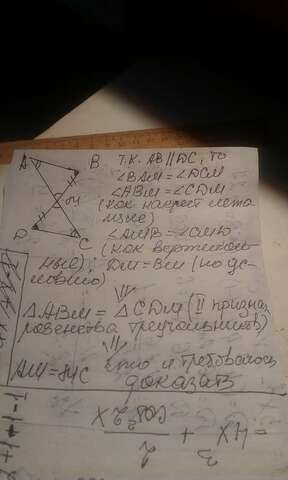 A
B
M
D
C
Т.К. AB||DC, то
∠BAM=∠DCM
∠ABM=∠CDM
(как накрест лежа
щие)
∠AMB=∠CMD
(как вертикаль
ные); DM=BM (по ус-
ловию)
⇓
△ABM = △CDM (II призна
равенства треугольник)
⇓
AM=MC
что и требовалось
доказать